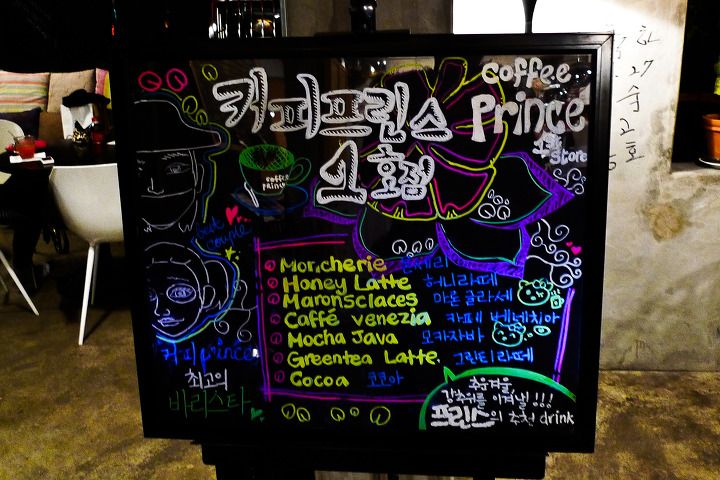 커피프린스
1호점
coffee
Prince
1호 Store
coffee
prince
best
couple
Mon.cherie 몬쉐리
Honey Latte 허니라떼
Maronsclaces 마론글라세
Caffé venezia 카페 베네치아
Mocha Java 모카자바
Greentea Latte. 그린티라떼
Cocoa 코코아
커피prince
최고의
바리스타
추운겨울,
강추위를 이겨낼!!!
프린스의 추천 drink